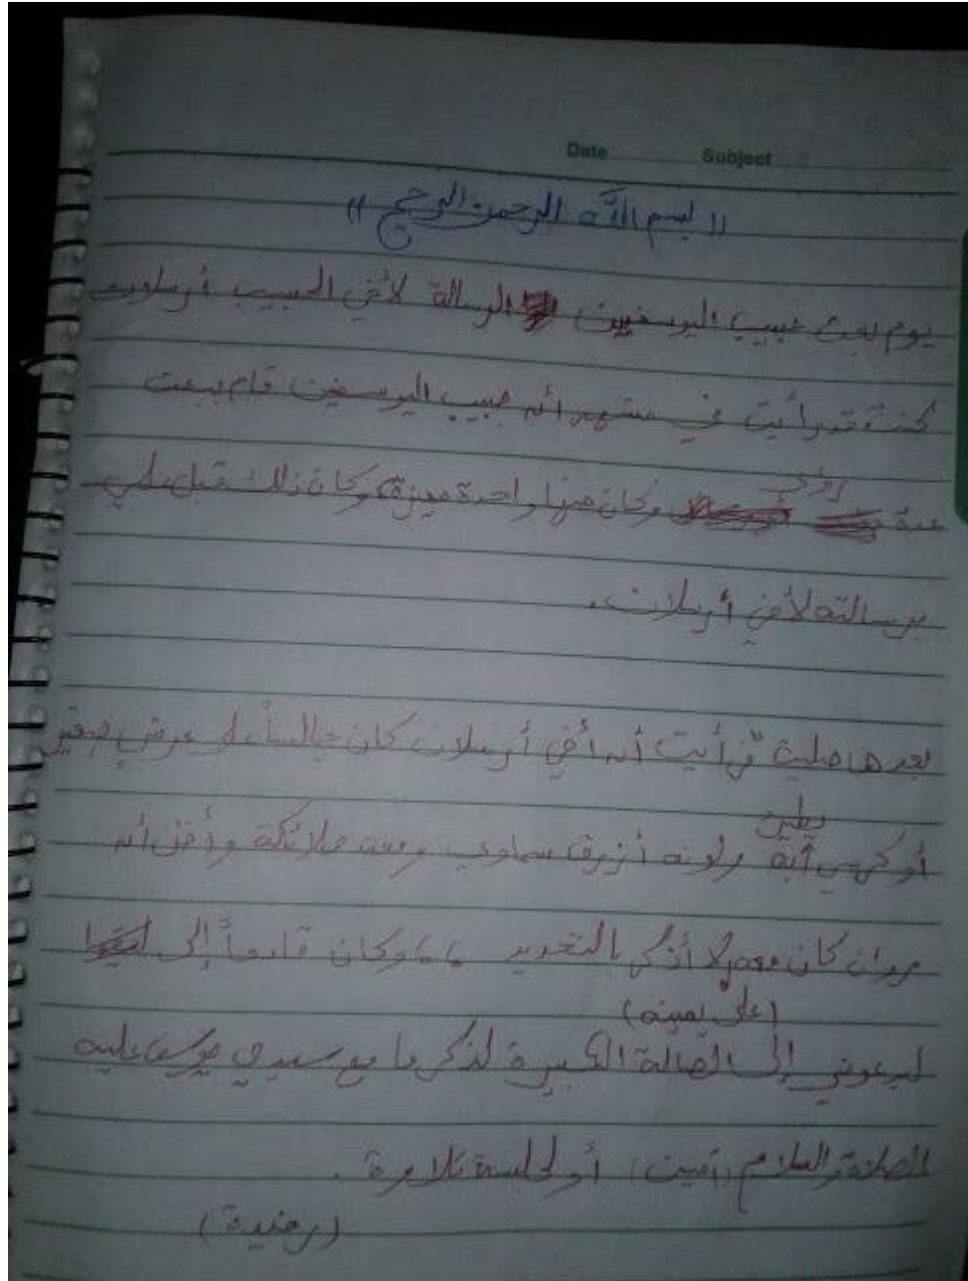 Date Subject
(( بسم الله الرحمن الرحيم ))
يوم بعث حبيب اليوسفيين الرسالة لأخي الحبيب أرسلان
كنت قد رأيت في مشهد أنه حبيب اليوسفيين قام ببعث
رؤى
عدة وكان منها واحدة مميزة، وكان ذلك قبل علمي
برسالته لأخي أرسلان.
بعدها رأيت أنه أخي أرسلان كان جالساً على عرش صغير
يطير
أو كرسي ولونه أزرق سماوي ومعه ملائكة وأظن أنه
مروان كان معه لا أذكر بالتحديد ،، وكان قادماً إلى
(على يمينه)
ليدعوني إلى الصالة الكبيرة لذكر ما مع سيدي يوسف عليه
الصلاة والسلام (آمين) أو لجلسة تلاوة .